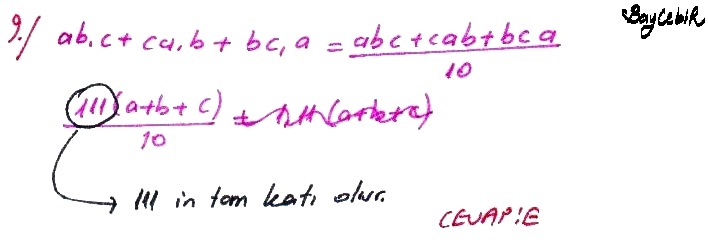 BayCebiR
9./ ab,c + ca,b + bc,a = abc + cab + bca / 10
111(a+b+c) / 10
→ 111 in tam katı olur.
CEVAP:E